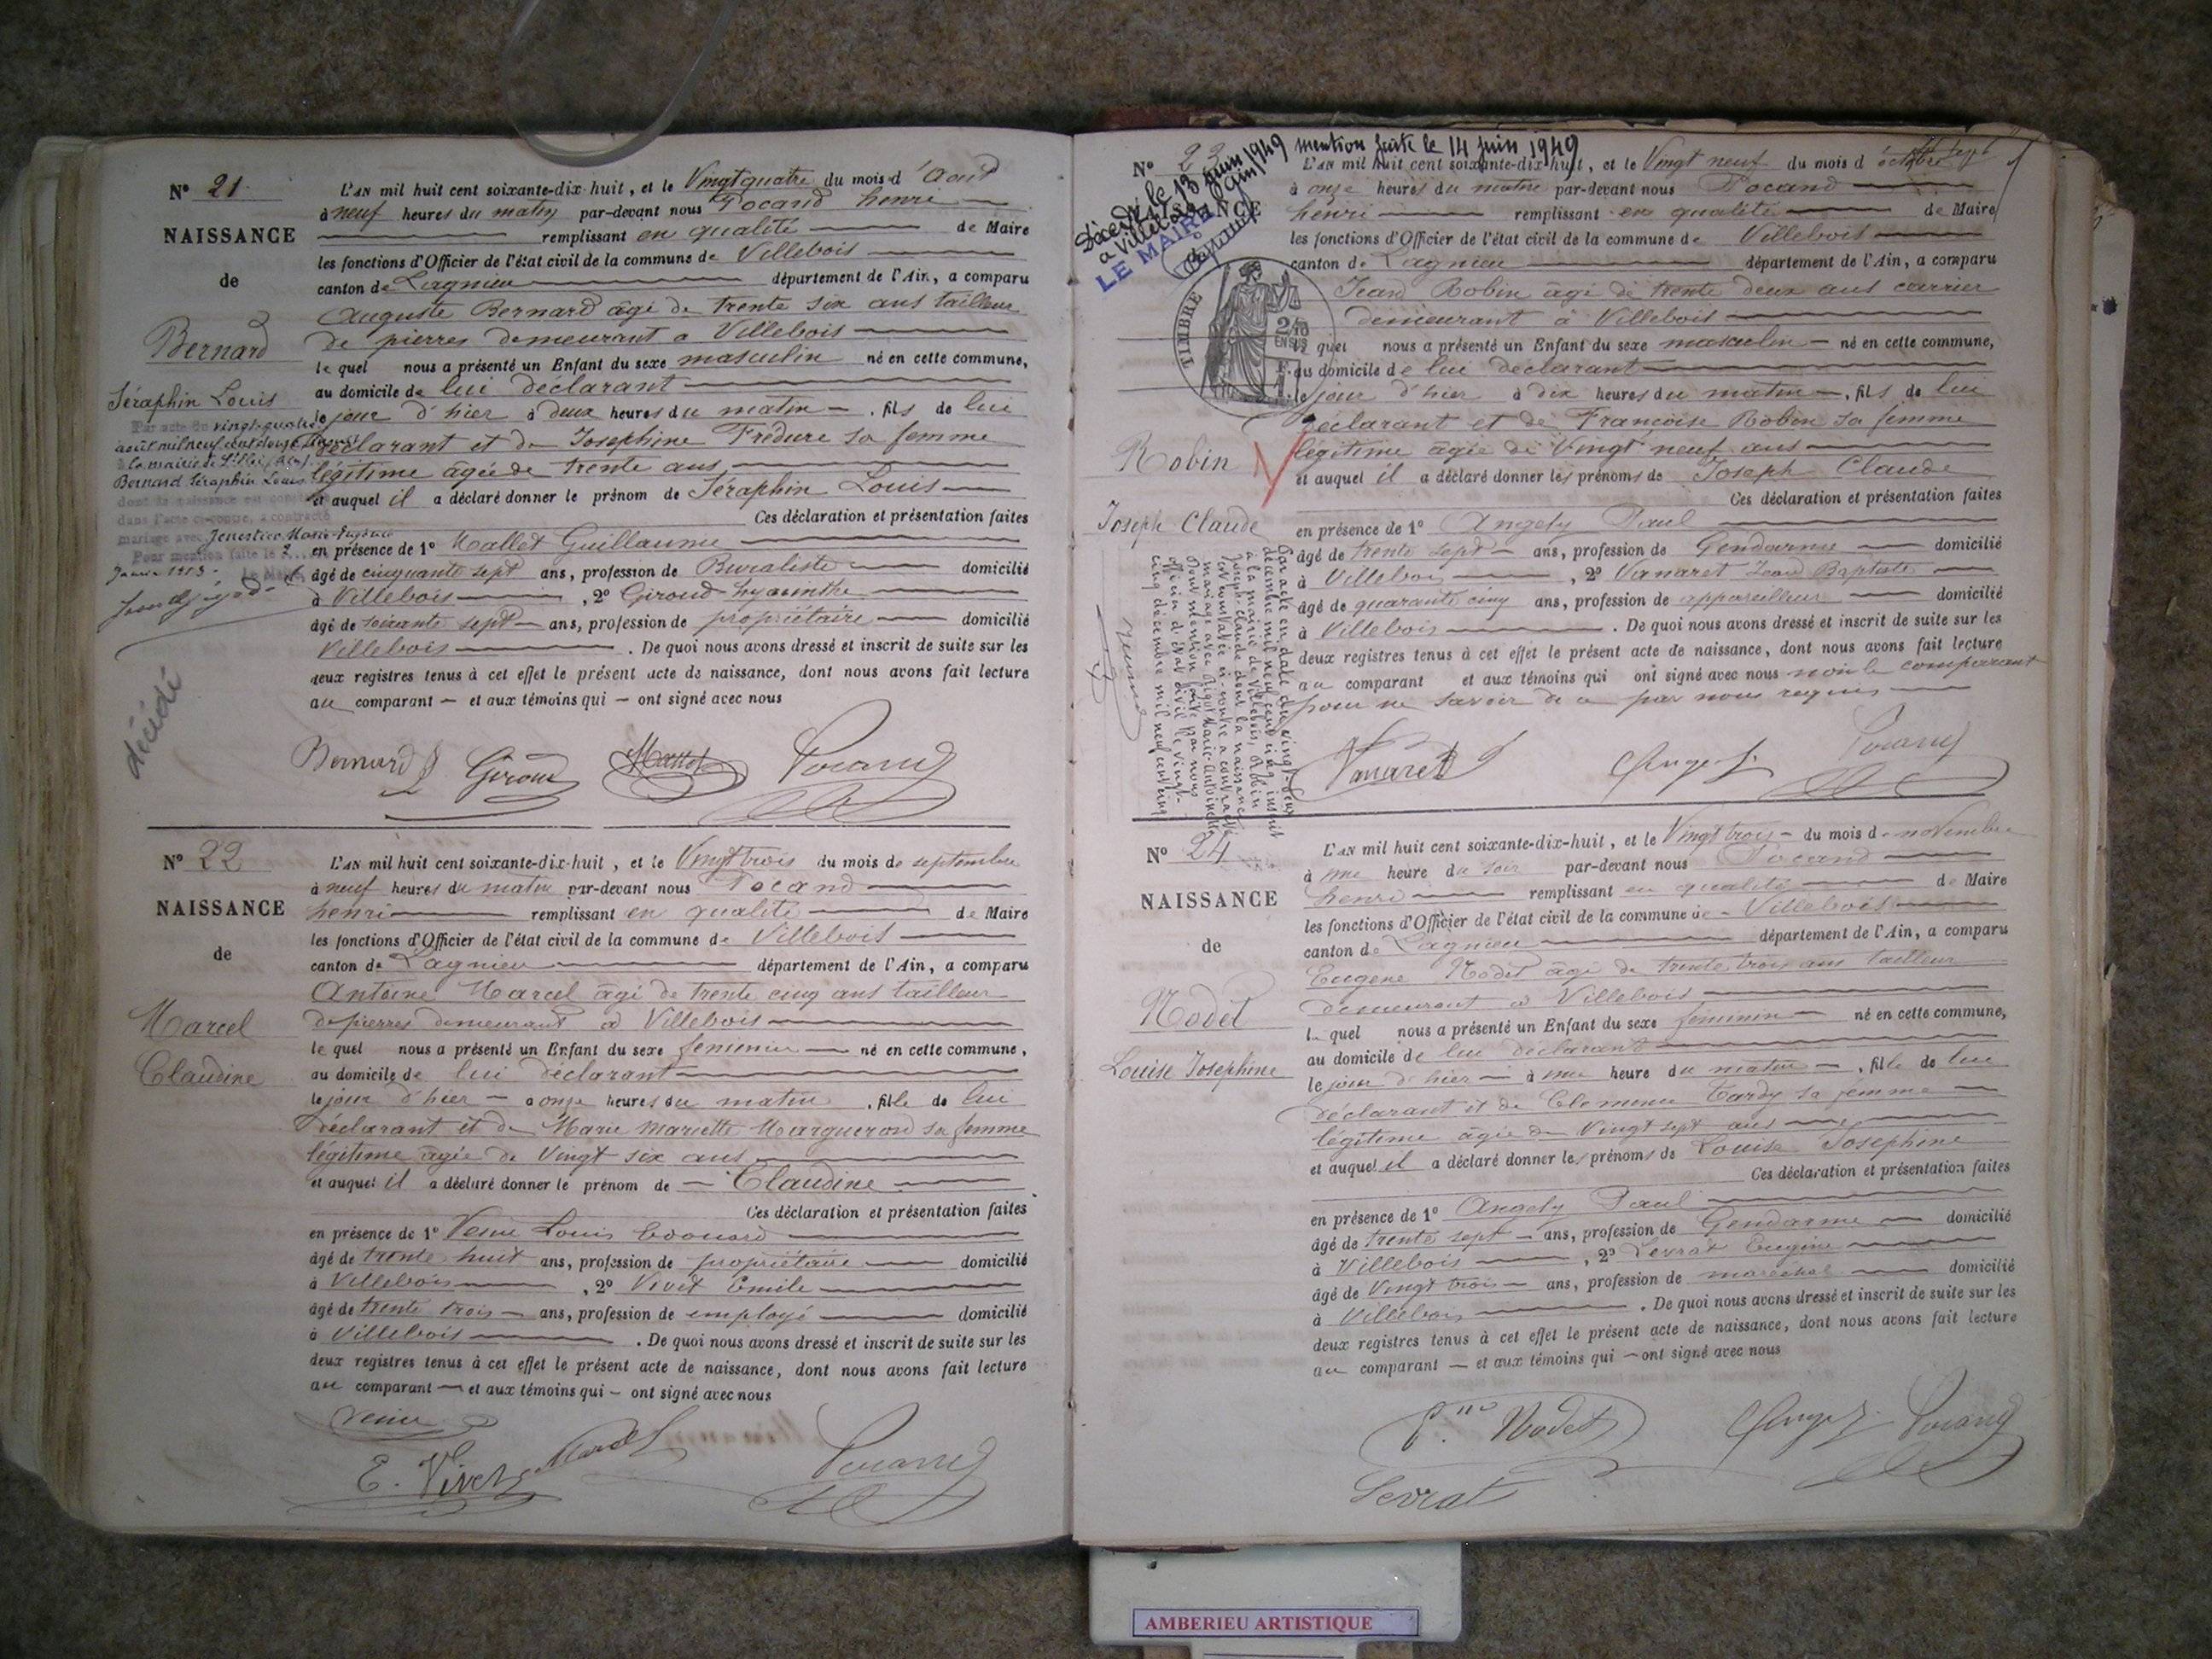 N° 21
NAISSANCE
de
Bernard
Séraphin Louis
vingt-quatre
août mil neuf cent douze
la mairie de
Bernard Séraphin Louis
dont la naissance est constatée
dans l'acte ci-contre, a contracté
mariage avec
Pour mention faite le 2
Janvier 1913
décédé
L'AN mil huit cent soixante-dix-huit, et le Vingt quatre du mois d'Août
à neuf heures du matin par-devant nous Pocand henri
remplissant en qualité de Maire
les fonctions d'Officier de l'état civil de la commune de Villebois
canton de Lagnieu département de l'Ain, a comparu
Auguste Bernard âgé de trente six ans tailleur
de pierres demeurant a Villebois
le quel nous a présenté un Enfant du sexe masculin né en cette commune,
au domicile de lui déclarant
le jour d'hier à deux heures du matin, fils de lui
déclarant et de Josephine Fredure sa femme
légitime âgée de trente ans
et auquel il a déclaré donner le prénom de Séraphin Louis
Ces déclaration et présentation faites
en présence de 1° Mallet Guillaume
âgé de cinquante sept ans, profession de Buraliste domicilié
à Villebois, 2° Giroud hyacinthe
âgé de soixante sept ans, profession de propriétaire domicilié
Villebois. De quoi nous avons dressé et inscrit de suite sur les
deux registres tenus à cet effet le présent acte de naissance, dont nous avons fait lecture
au comparant et aux témoins qui ont signé avec nous
Bernard Giroud Mallet Pocand
N° 22
NAISSANCE
de
Marcel
Claudine
L'AN mil huit cent soixante-dix-huit, et le Vingt trois du mois de septembre
à neuf heures du matin par-devant nous Pocand
henri remplissant en qualité de Maire
les fonctions d'Officier de l'état civil de la commune de Villebois
canton de Lagnieu département de l'Ain, a comparu
Antoine Marcel âgé de trente cinq ans tailleur
de pierres demeurant à Villebois
le quel nous a présenté un Enfant du sexe feminin né en cette commune,
au domicile de lui déclarant
le jour d'hier à onze heures du matin, fille de lui
déclarant et de Marie Mariette Marguerond sa femme
légitime âgée de Vingt six ans
et auquel il a déclaré donner le prénom de Claudine
Ces déclaration et présentation faites
en présence de 1° Venu Louis Edouard
âgé de trente huit ans, profession de propriétaire domicilié
à Villebois, 2° Vivet Emile
âgé de trente trois ans, profession de employé domicilié
à Villebois. De quoi nous avons dressé et inscrit de suite sur les
deux registres tenus à cet effet le présent acte de naissance, dont nous avons fait lecture
au comparant et aux témoins qui ont signé avec nous
E. Vivet Marcel Pocand
mention faite le 14 juin 1949
N° 23
Décédé le 13 juin 1949
à Villebois
LE MAIRE
TIMBRE
Robin
Joseph Claude
Par acte en date du vingt-deux
décembre mil neuf cent cinq inscrit
à la mairie de Villebois, Robin
Joseph Claude dont la naissance
est constatée ci-contre a contracté
mariage avec Marie Antoinette
Pour mention faite par nous
Officier d'état civil le vingt-
cinq décembre mil neuf cent cinq
L'AN mil huit cent soixante-dix-huit, et le Vingt neuf du mois d'octobre
à onze heures du matin par-devant nous Pocand
henri remplissant en qualité de Maire
les fonctions d'Officier de l'état civil de la commune de Villebois
canton de Lagnieu département de l'Ain, a comparu
Jean Robin âgé de trente deux ans carrier
demeurant à Villebois
le quel nous a présenté un Enfant du sexe masculin né en cette commune,
au domicile de lui déclarant
le jour d'hier à dix heures du matin, fils de lui
déclarant et de Françoise Robin sa femme
légitime âgée de Vingt neuf ans
et auquel il a déclaré donner les prénoms de Joseph Claude
Ces déclaration et présentation faites
en présence de 1° Angely Paul
âgé de trente sept ans, profession de Gendarme domicilié
à Villebois, 2° Vanaret Jean Baptiste
âgé de quarante cinq ans, profession de appareilleur domicilié
à Villebois. De quoi nous avons dressé et inscrit de suite sur les
deux registres tenus à cet effet le présent acte de naissance, dont nous avons fait lecture
au comparant et aux témoins qui ont signé avec nous non le comparant
pour ne savoir de ce par nous requis
Vanaret Angely Pocand
N° 24
NAISSANCE
de
Nodet
Louise Josephine
L'AN mil huit cent soixante-dix-huit, et le Vingt trois du mois de novembre
à une heure du soir par-devant nous Pocand
henri remplissant en qualité de Maire
les fonctions d'Officier de l'état civil de la commune de Villebois
canton de Lagnieu département de l'Ain, a comparu
Eugene Nodet âgé de trente trois ans tailleur
demeurant à Villebois
le quel nous a présenté un Enfant du sexe féminin né en cette commune,
au domicile de lui déclarant
le jour d'hier à une heure du matin, fille de lui
déclarant et de Clemence Tardy sa femme
légitime âgée de Vingt sept ans
et auquel il a déclaré donner les prénoms de Louise Josephine
Ces déclaration et présentation faites
en présence de 1° Angely Paul
âgé de trente sept ans, profession de Gendarme domicilié
à Villebois, 2° Levrat Eugène
âgé de Vingt trois ans, profession de maréchal domicilié
à Villebois. De quoi nous avons dressé et inscrit de suite sur les
deux registres tenus à cet effet le présent acte de naissance, dont nous avons fait lecture
au comparant et aux témoins qui ont signé avec nous
Nodet Angely Pocand
Levrat
AMBERIEU ARTISTIQUE